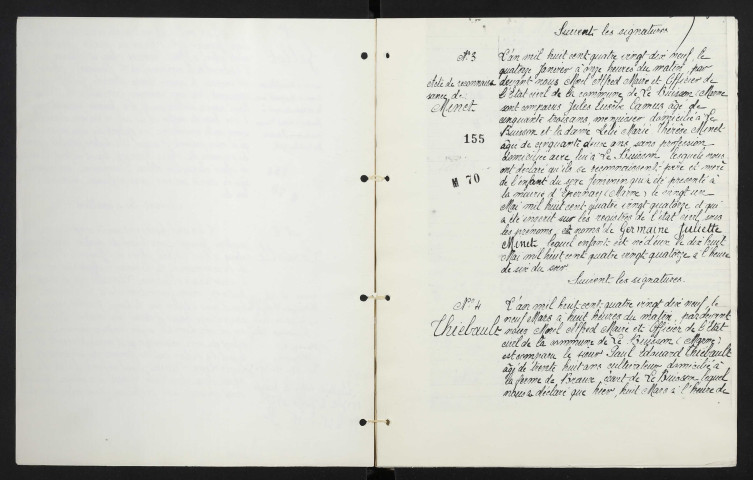 Suivent les signatures
N° 3
Acte de reconnais
sance de
Minet
155
M 70
L'an mil huit cent quatre vingt dix neuf, le
quatorze Janvier à onze heures du matin, par
devant nous Morel Alfred Maire et Officier de
l'Etat civil de la commune de Le Buisson (Marne
sont comparus Jules Camus âgé de
cinquante trois ans, menuisier domicilié à Le
Buisson et la dame Marie Thérèse Minet
âgée de cinquante deux ans, sans profession
domiciliée avec lui à Le Buisson, lesquels nous
ont déclaré qu'ils se reconnaissent père et mère
de l'enfant du sexe féminin qui a été présenté à
la mairie d'Epernay (Marne) le vingt un
Mai mil huit cent quatre vingt quatorze et qui
a été inscrit sur les registres de l'état civil sous
les prénoms et noms de Germaine Juliette
Minet, lequel enfant est né d'eux le dix huit
Mai mil huit cent quatre vingt quatorze à l'heure
de six du soir
Suivent les signatures.
N° 4
Thiébault
L'an mil huit cent quatre vingt dix neuf, le
neuf Mars à huit heures du matin, par devant
nous Morel Alfred Maire et Officier de l'Etat
civil de la commune de Le Buisson (Marne)
est comparu le sieur Paul Edouard Thiébault
âgé de trente huit ans cultivateur domicilié à
la ferme de Beaux, écart de Le Buisson lequel
nous a déclaré que hier, huit Mars à l'heure de